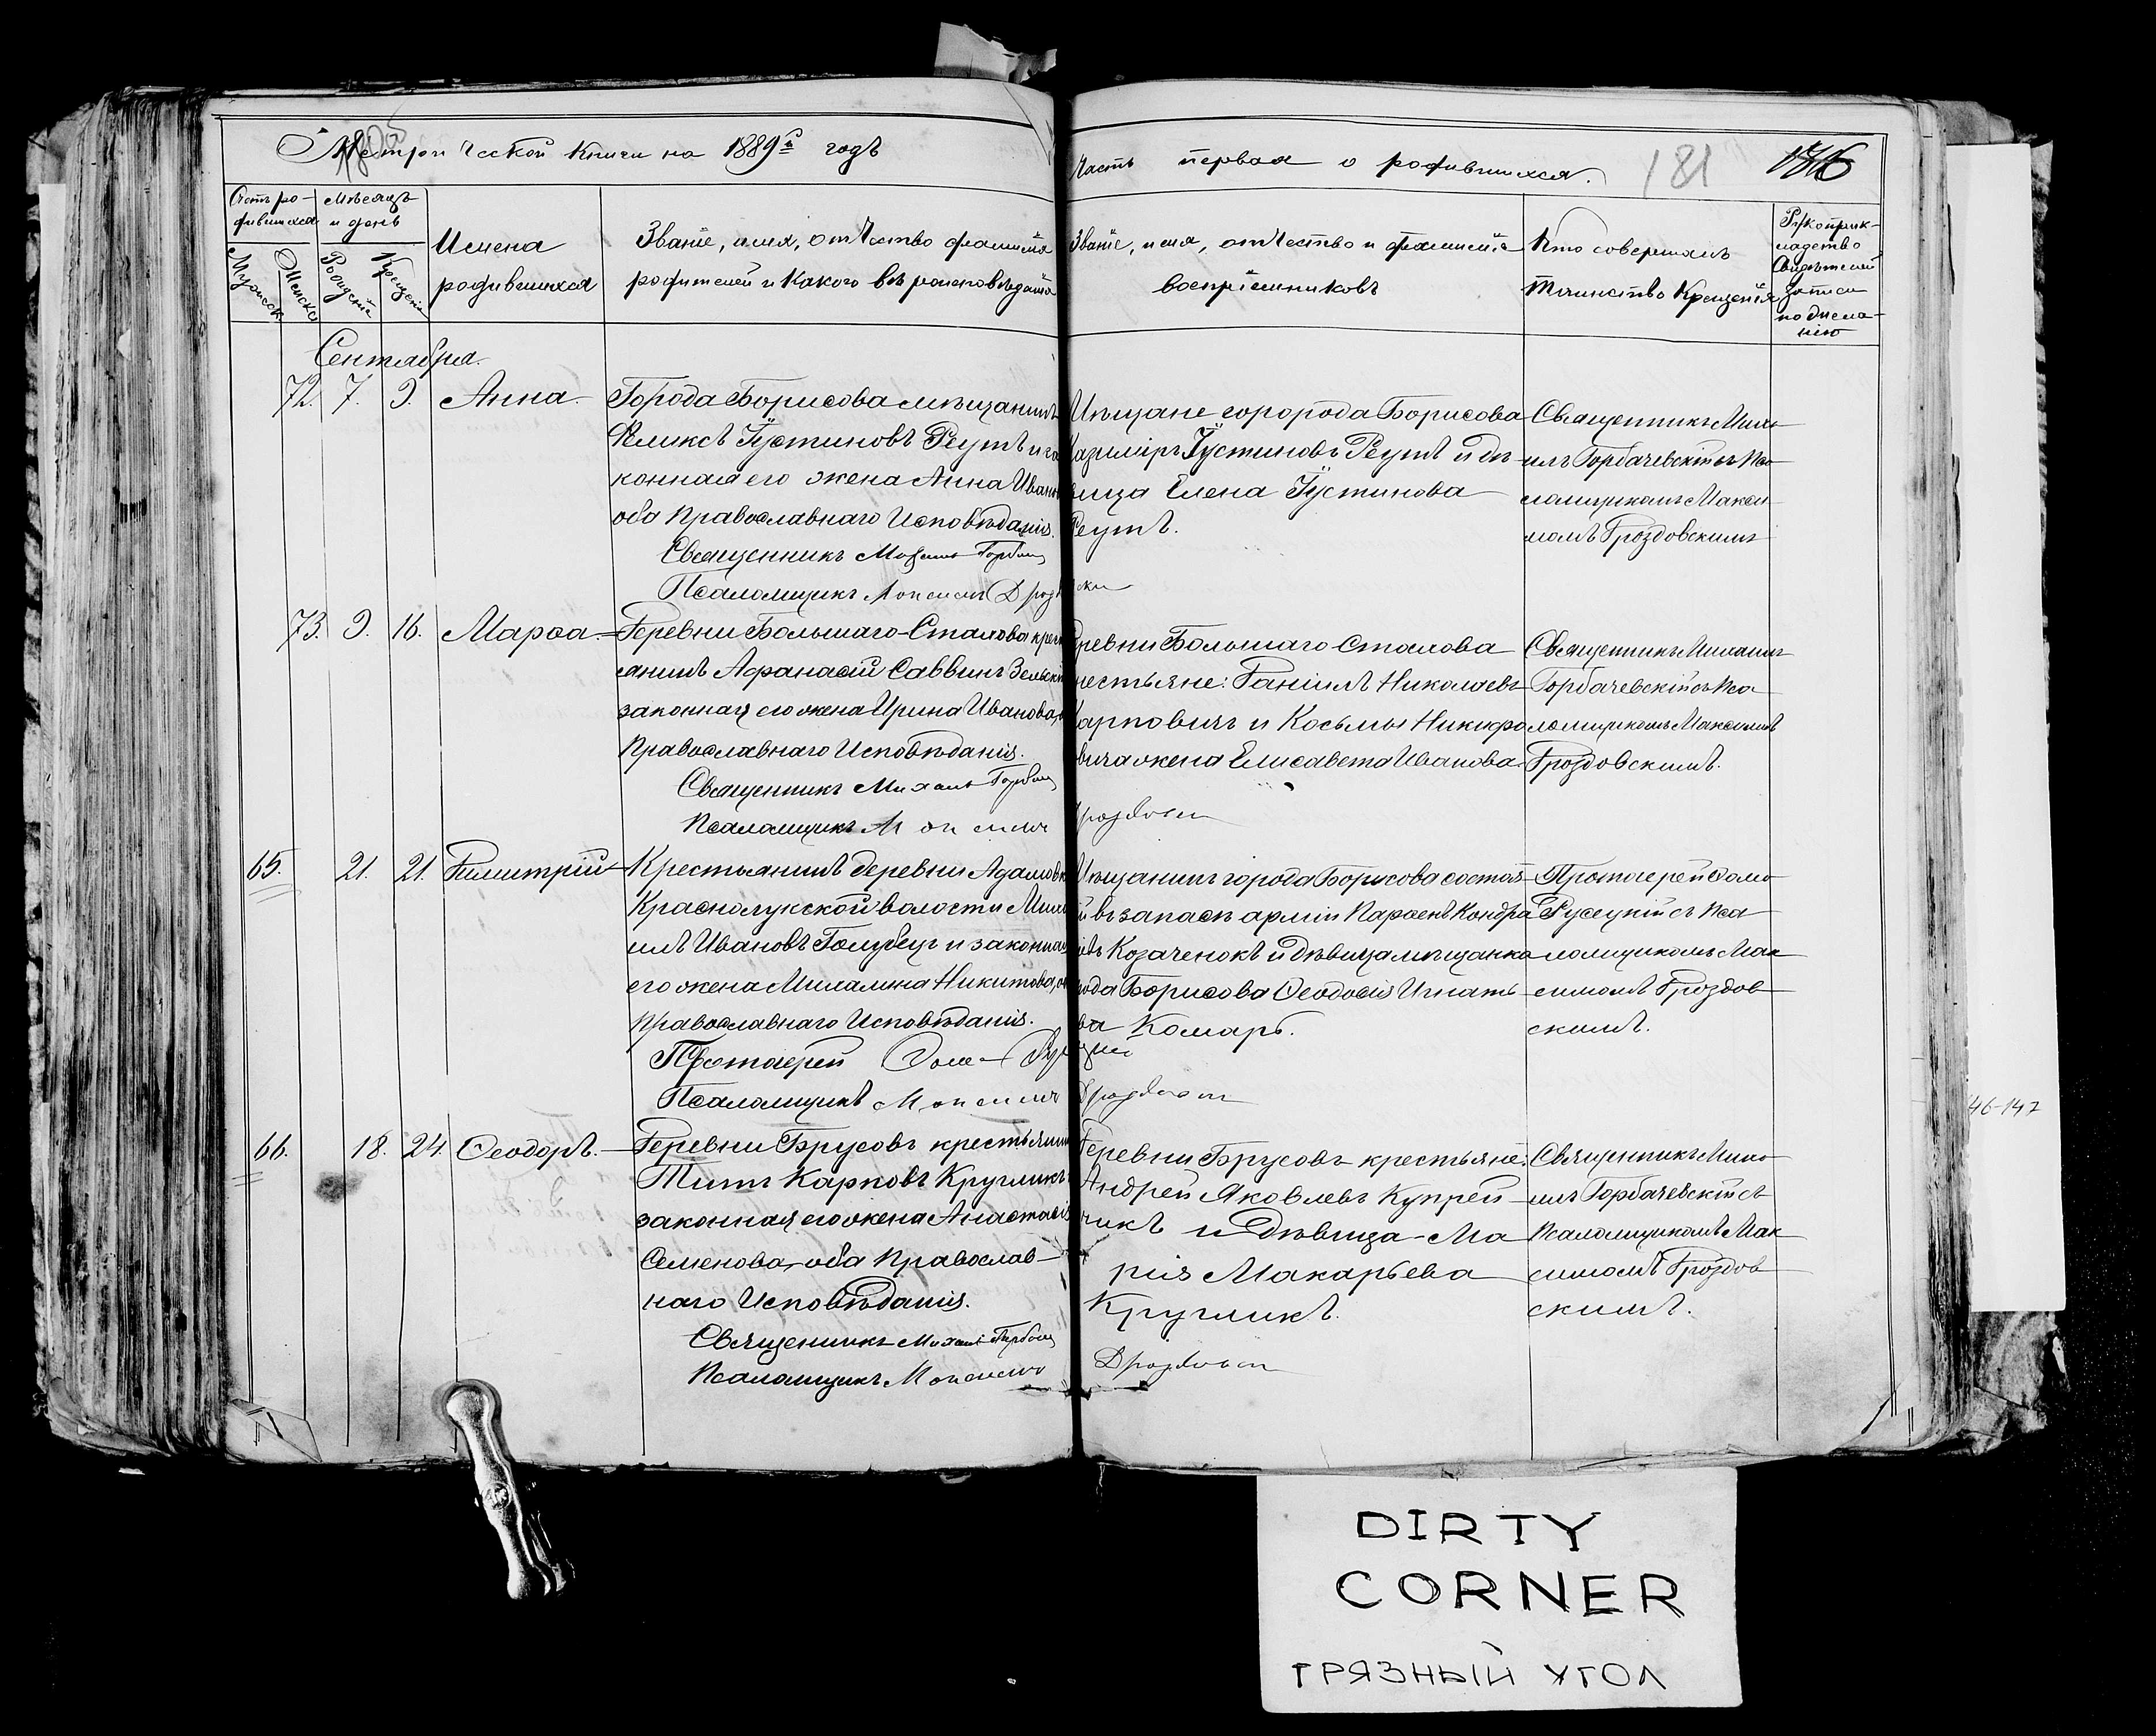 Метрической книги на 1889й годъ
Часть первая о родившихся.
181
Счетъ ро-
дившихся
Мѣсяцъ
и день
Мужска
Женска
Рожденія
Крещенія
Имена
родившихся
Званіе, имя, отчество фамилія
родителей и какого вѣроисповѣданія
Званіе, имя, отчество и фамилія
воспріемниковъ
Кто совершалъ
таинство Крещенія
Рукоприк-
ладство
свидѣтелей
записи
по жела-
нію
Сентября.
72. 7. 9. Анна.
Города Борисова мѣщанинъ
Феликсъ Іустиновъ Реутъ и за
конная его жена Анна Иван
оба Православнаго Исповѣданія.
Священникъ Михаилъ Горбач
Псаломщикъ Максимъ Дроз
Мѣщане горорода Борисова
Казиміръ Іустиновъ Реутъ и дѣ-
вица Елена Іустинова
Реутъ.
Священникъ Миха-
илъ Горбачевскій съ Пса
ломщикомъ Макси-
момъ Дроздовскимъ
73. 9. 16. Марѳа.
Деревни Большаго-Стахова крест
янинъ Афанасій Саввинъ Зельскі
законная его жена Ирина Иванова,
Православнаго Исповѣданія.
Священникъ Михаилъ Горбач
Псаломщикъ Максимъ
Деревни Большаго Стахова
крестьяне: Даніилъ Николаевъ
Карповичъ и Косьмы Никифо
вича жена Елисавета Иванова.
Дроздовски
Священникъ Михаилъ
Горбачевскій съ Пса-
ломщикомъ Максимомъ
Дроздовскимъ.
65. 21. 21. Димитрій
Крестьянинъ деревни Адамовк
Краснолукской волости Миха
илъ Ивановъ Голубецъ и законная
его жена Миланія Никитова, об
Православнаго Исповѣданія.
Протоіерей Фома Рус
Псаломщикъ Максимъ
Мѣщанинъ города Борисова состоя-
й въ запасѣ арміи Парѳенъ Кондра
евъ Козаченокъ и дѣвица мѣщанка
рода Борисова Ѳеодосія Игнать-
ва Комаръ.
Дроздовски
Протоіерей Фома
Русецкій съ Пса-
ломщикомъ Мак
симомъ Дроздов-
скимъ.
66. 18. 24. Ѳеодоръ.
Деревни Брусовъ крестьянин
Титъ Карповъ Кругликъ
законная его жена Анастасія
Семенова, оба Православ-
наго Исповѣданія.
Священникъ Михаилъ Горбач
Псаломщикъ Максимъ
Деревни Брусовъ крестьяне:
Андрей Яковлевъ Купрей-
чикъ и дѣвица Ма
рія Макарьева
Кругликъ.
Дроздовски
Священникъ Миха-
илъ Горбачевскій съ
Псаломщикомъ Мак
симомъ Дроздов
скимъ.
46-147
DIRTY
CORNER
ГРЯЗНЫЙ УГОЛ